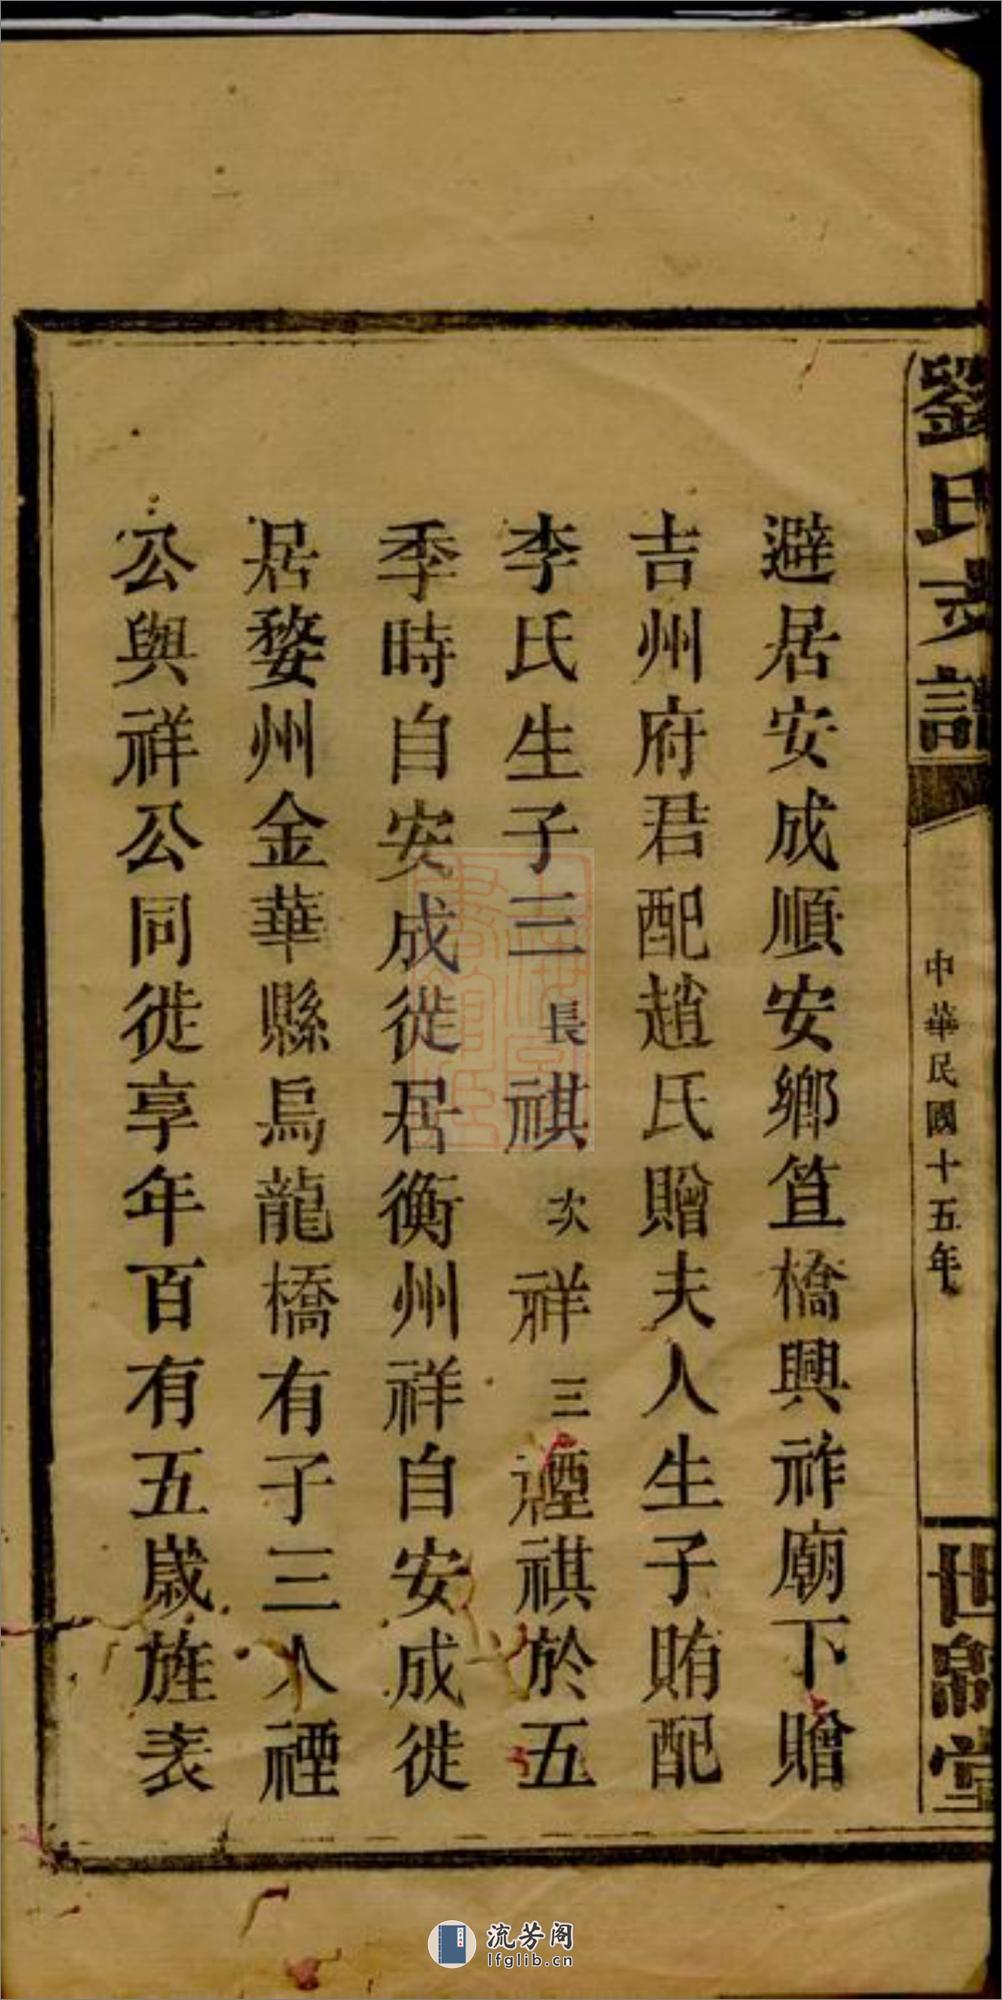 劉氏支譜
中華民國十五年
世綵堂
避居安成順安鄉笪橋興祚廟下贈
吉州府君配趙氏贈夫人生子賄配
李氏生子三長祺次祥三禋祺於五
季時自安成徙居衡州祥自安成徙
居婺州金華縣烏龍橋有子三人禋
公與祥公同徙享年百有五歲旌表
流芳阁
lfglib.cn